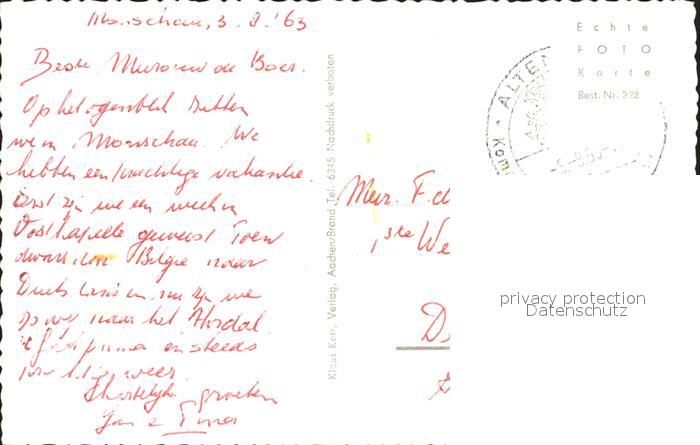 Monschau, 3.8.'63
Beste Mevrouw de Boer.
Op het ogenblik zitten
we in Monschau. We
hebben een prachtige vakantie.
Eerst zijn we een week in
Oostkapelle geweest. Toen
dwars door België naar
Duits en nu zijn we
op weg naar het Ahrdal.
en steeds
weer.
Hartelijke groeten
Jan &
Klaus Kerr, Verlag, Aachen/Brand Tel. 6345 Nachdruck verboten
Echte
FOTO
Karte
Best. Nr. 228
ALTE
Mevr. F. d
1ste We
D
privacy protection
Datenschutz